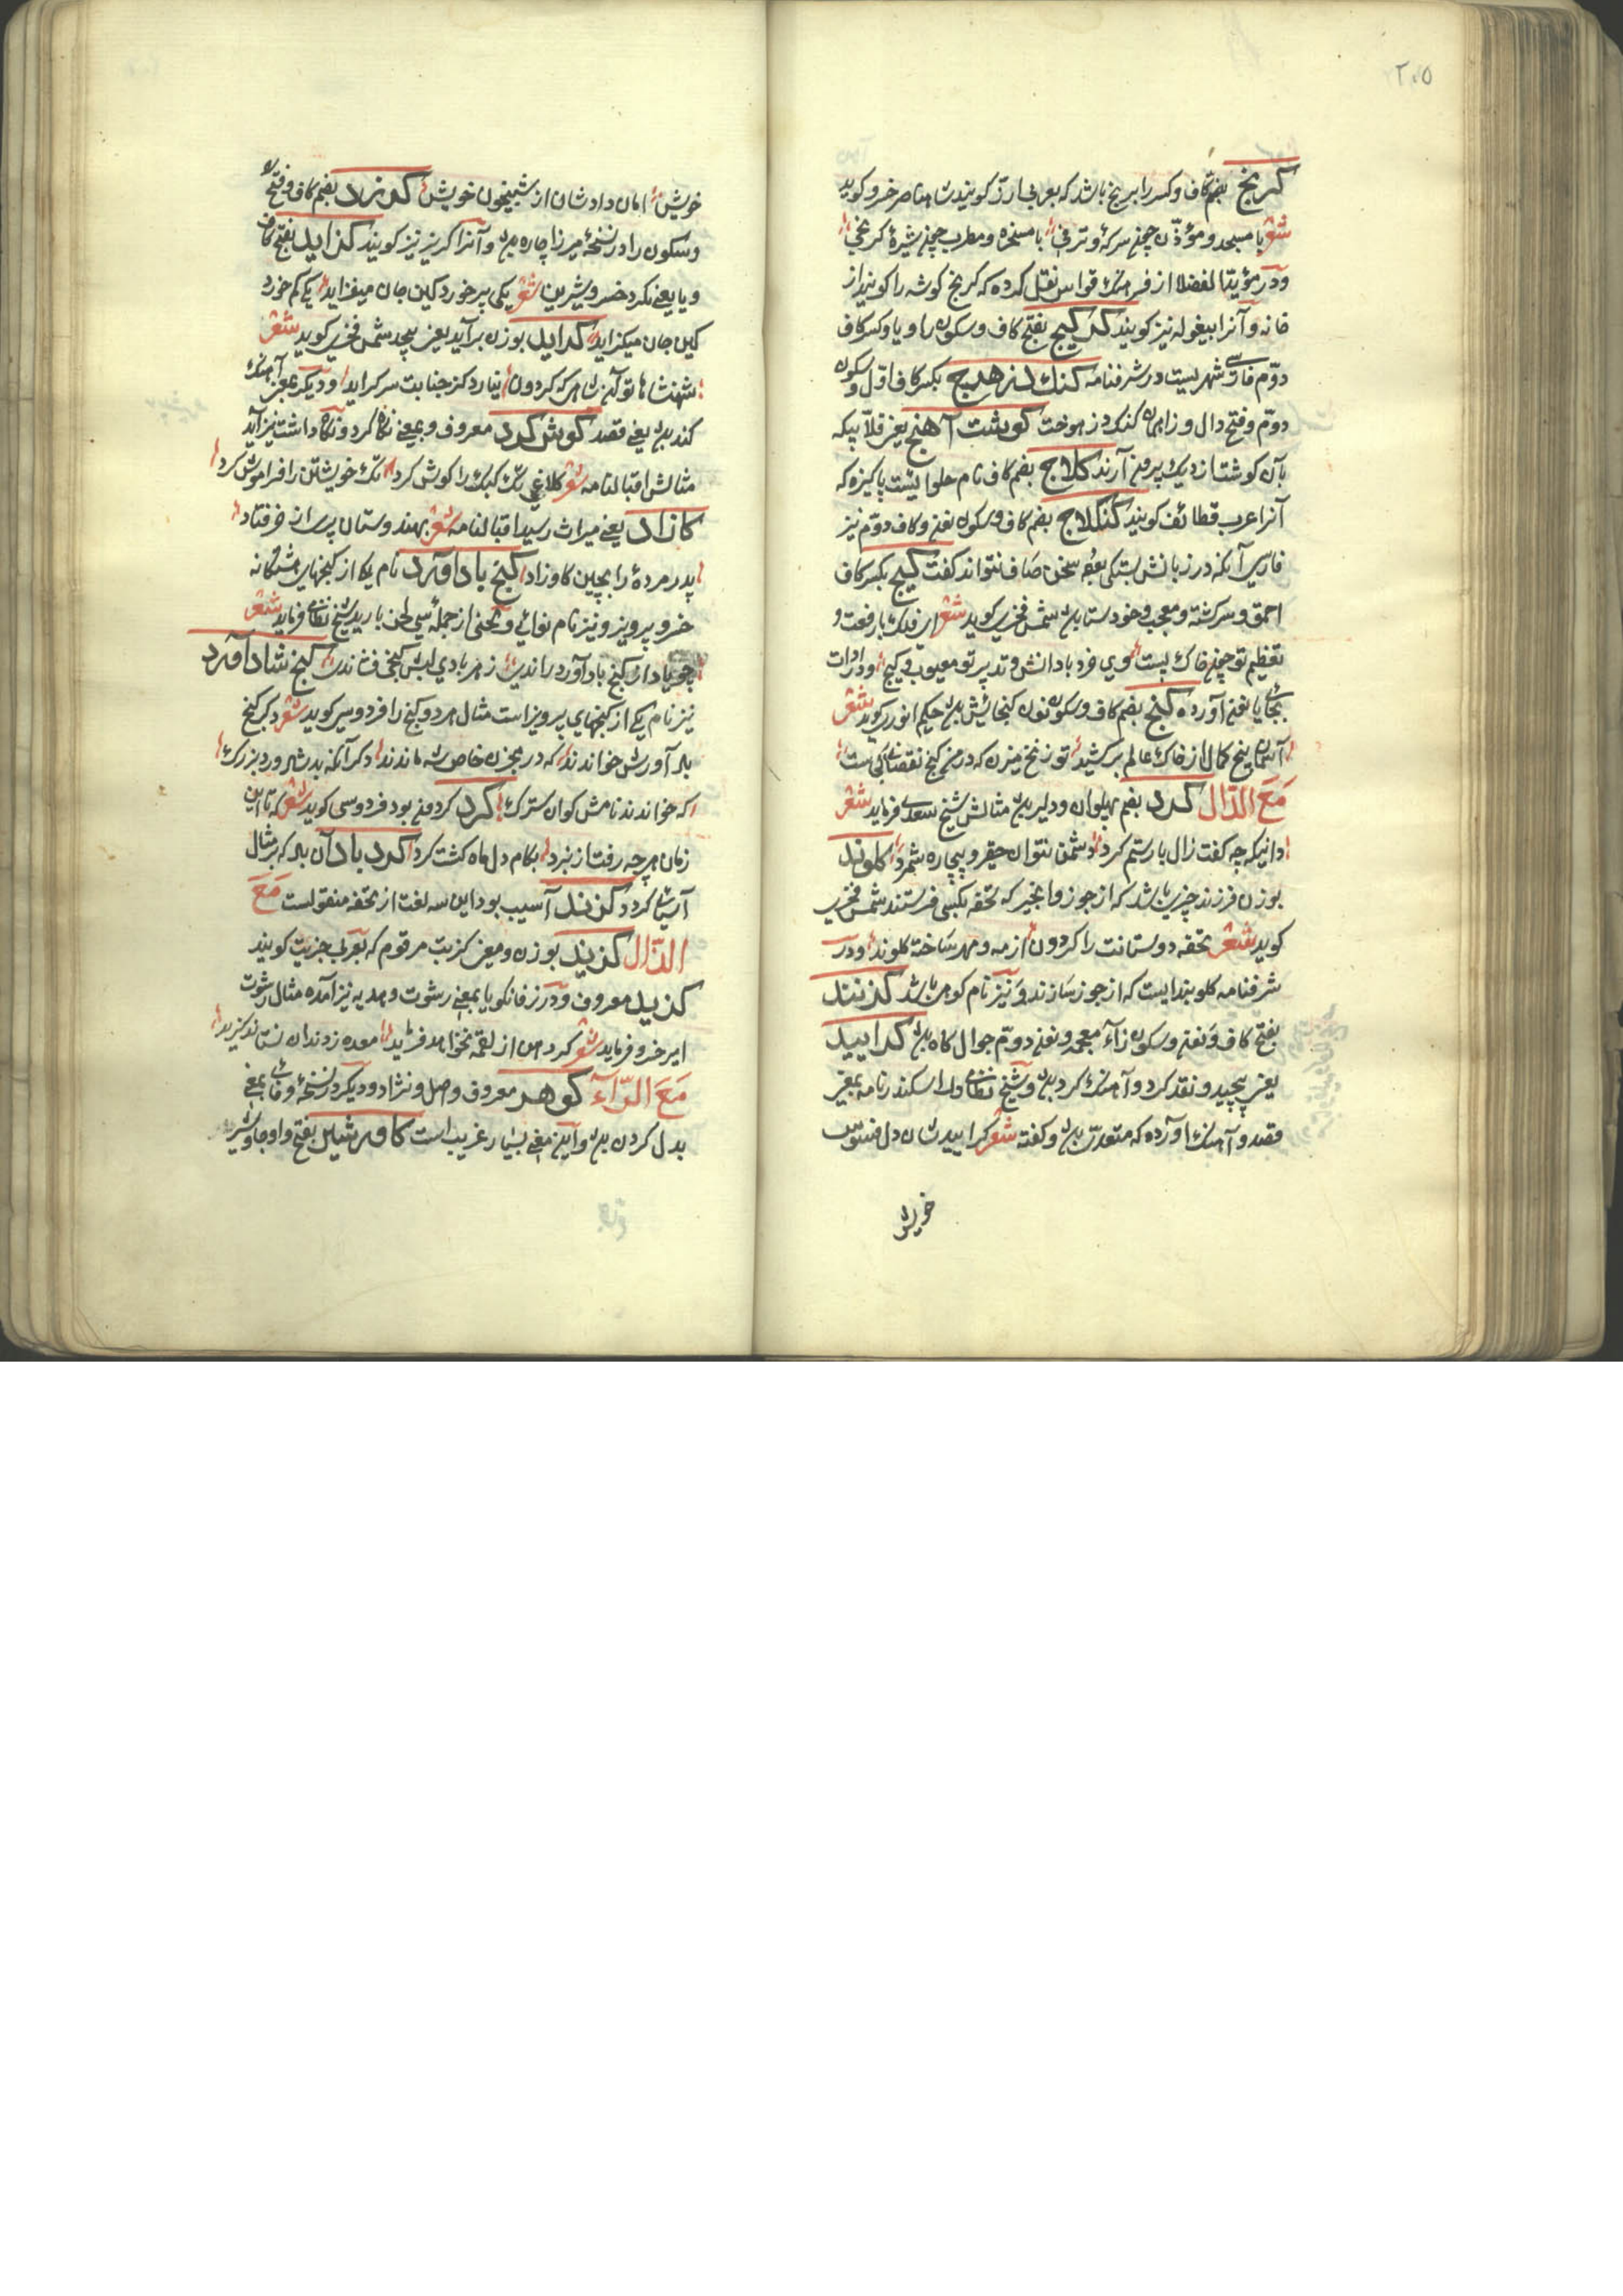 ۲۰۵
کرنج بضم کاف و کسر را برنج باشد که بعربی ارز کویند شاه ناصر خسرو کوید
شعر با مسجد و مؤذن چون سرکهٔ و ترفی با مسخره و مطرب چون شیرهٔ کرنجی
و در مؤید الفضلا از فرهنک قواس نقل کرده که کریج کوشه را کویند از
خانه و آنرا بیغوله نیز کویند کرکیج بفتح کاف و سکون را و یا و کسر کاف
دوّم فارسی شهریست در شرفنامه کنک دزهرج بکسر کاف اوّل و سکون
دوّم و فتح دال و زا همان کنک دز هوخت کوشت آهنج یعنی قلّابیکه
بآن کوشت از دیک بیرون آرند کلاج بضم کاف نام حلوائیست پاکیزه که
آنرا عرب قطائف کویند کنکلاج بضم کاف و سکون نون و کاف دوّم نیز
فارسی آنکه در زبانش بستکی بود سخن صاف نتواند کفت کیج بکسر کاف
احمق و سرکشته و معجب و خودستا بود شمس فخری کوید شعر ای فلک با رفعت و
تعظیم تو چون خاک پست وی خرد با دانش و تدبیر تو معیوب و کیج و در ادات
بجای یا نون آورده کنج بضم کاف و سکون نون کنجایش بود حکیم انوری کوید شعر
آسمان پنج کمال از خاک عالم برکشید تو زنخ میزن که در من کنج نقصانی کی است
مَعَ الدّال کرد بضم پهلوان و دلیر بود مثالش شیخ سعدی فرماید شعر
دانیکه چه کفت زال با رستم کرد دشمن نتوان حقیر و بیچاره شمرد کلوند
بوزن فرزند چیزی باشد که از جوز و انجیر که تحفه بکسی فرستند شمس فخری
کوید شعر تحفه دوستانت را کردون از مه و مهر ساخته کلوند و در
شرفنامه کلوبندایست که از جوز سازند و نیز نام کوهی باشد کزنند
بفتح کاف و نون و سکون زآء معجمه و نون دوّم جوال کاه بود کرایید
یعنی پیچید و نقد کرد و آهنک کرد بود و شیخ نظامی در اسکندرنامه بمعنی
قصد و آهنک آورده که متعدّی بود و کفته شعر کراییدشان دل فسوس
خویش
خویش امان دادشان از شبیخون خویش کوزرد بضم کاف و فتح
و سکون را در نسخهٔ میرزا چاره بود و آنرا کریز نیز کویند کزاید بفتح کاف
و یا یعنی نکرد خسرو شیرین شعر یکی پر خورد کین جان میفزاید یکی کم خورد
کین جان میکزاید کراید بوزن برآید یعنی پیچد شمس فخری کوید شعر
شهنشاها توآنی شاه که کردون نیارد کز جنابت سر کراید و دیکر بمعنی آهنک
کند بود یعنی قصد کوش کرد معروف و بمعنی نکاه کرد و نکاه داشت نیز آید
مثالش اقبالنامه شعر کلاغی تک کبک را کوش کرد تک خویشتن را فراموش کرد
کازاد یعنی میراث رسید اقبالنامه شعر بهندوستان پیری از خر فتاد
پدر مردهٔ را بچین کاو زاد کنج بادآورد نام یکی از کنجهای هشتکانه
خسرو پرویز و نیز نام نوائی و لحنی از جمله سی لحن باربد شیخ نظامی فرماید شعر
چو باد از کنج بادآورد راندی ز هر بادی لبش کنجی فشاندی کنج شادآورد
نیز نام یکی از کنجهای پرویز است مثال هر دو کنج را فردوسی کوید شعر دکر کنج
بادآورش خواندند که در مخزن خاص شه ماندند دکر آنکه بد شادورد بزرک
که خواندند نامش کوان سترک کرد کردون بود فردوسی کوید شعر که تا این
زمان هر چه رفت از نبرد بکام دل ماه کشت کرد کردباد آن باد که بمثال
آسیا کردد کزند آسیب بود این سه لغت از تحفه منقولست مَعَ
الذّال کزید بوزن و معنی کزیت مرقوم که بعربی جزیت کویند
کزید معروف و در زفانکویا بمعنی رشوت و هدیه نیز آمده مثال رشوت
امیر خسرو فرماید شعر کر دهن از لقمه نخواهد فرید معده ز دندان نستاند کزید
مَعَ الرّآء کوهر معروف و اصل و نژاد و دیکر در نسخهٔ وفائی بمعنی
بدل کردن بود و این معنی بسیار غریب است کاورشیر بفتح واو جاوشیر